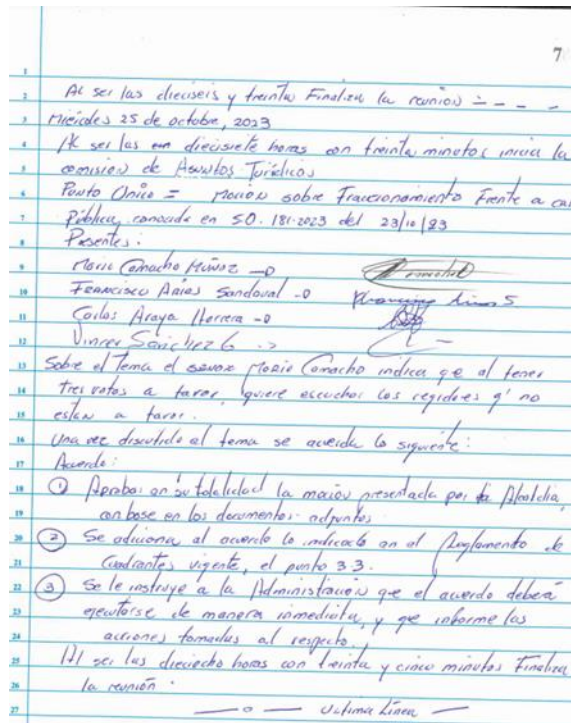 7
1
2 Al ser las dieciseis y treinta Finaliza la reunión = - - -
3 Miércoles 25 de octubre, 2023
4 Al ser las en diecisiete horas con treinta minutos inicia la
5 comisión de Asuntos Jurídicos
6 Punto Único = Moción sobre Fraccionamiento Frente a cal
7 Pública, conocida en S.O. 181-2023 del 23/10/23
8 Presentes:
9 Mario Camacho Muñoz
10 Francisco Arias Sandoval
11 Carlos Araya Herrera
12 Sánchez G
13 Sobre el Tema el señor Mario Camacho indica qe al tener
14 tres votos a favor, quiere escuchar los regidores q' no
15 estan a favor.
16 Una vez discutido el tema se acuerda lo siguiente:
17 Acuerdo:
18 ① Aprobar en su totalidad la moción presentada por la Alcaldía,
19 con base en los documentos adjuntos
20 ② Se adiciona al acuerdo lo indicado en el Reglamento de
21 Cuadrantes vigente, el punto 3.3.
22 ③ Se le instruye a la Administración que el acuerdo deberá
23 ejecutarse de manera inmediata, y qe informe las
24 acciones tomadas al respecto.
25 Al ser las dieciocho horas con treinta y cinco minutos Finaliza
26 la reunión.
27 —o— Ultima Línea —